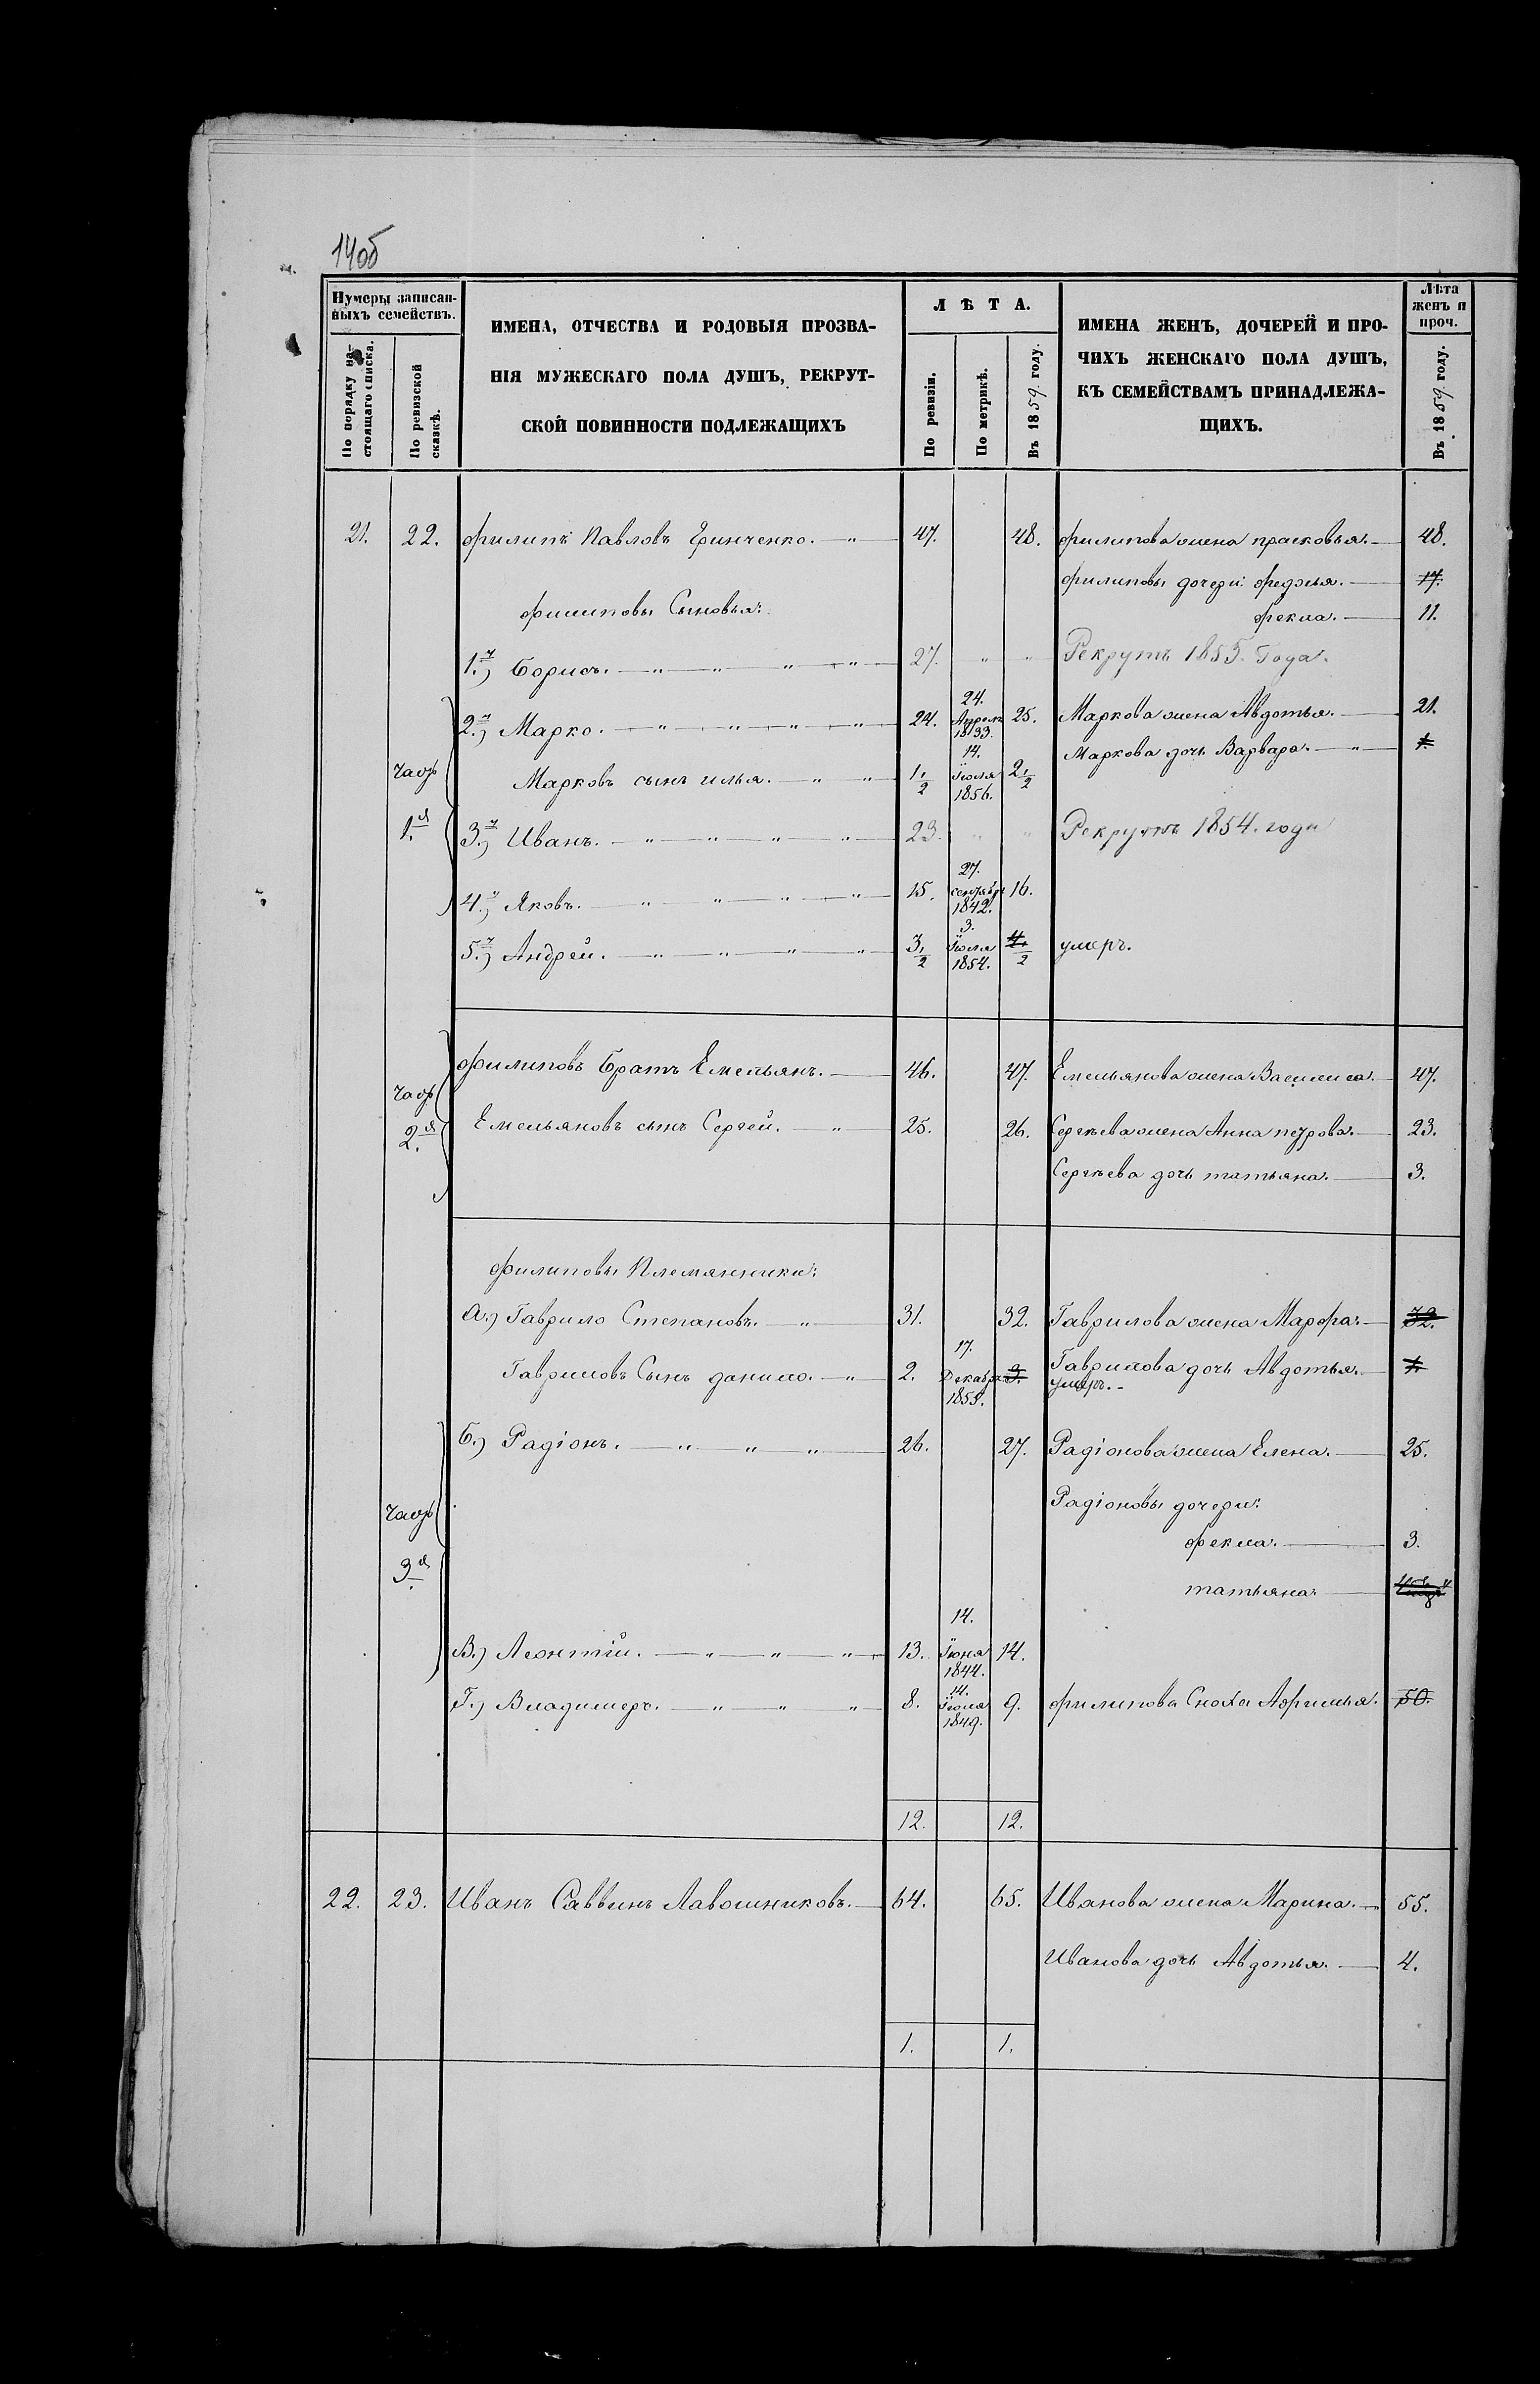 14об
Нумеры записан-
ныхъ семействъ.
По порядку на-
стоящаго списка.
По ревизской
сказкѣ.
ИМЕНА, ОТЧЕСТВА И РОДОВЫЯ ПРОЗВА-
НІЯ МУЖЕСКАГО ПОЛА ДУШЪ, РЕКРУТ-
СКОЙ ПОВИННОСТИ ПОДЛЕЖАЩИХЪ
ЛѢТА.
По ревизіи.
По метрикѣ.
Въ 1859 году.
ИМЕНА ЖЕНЪ, ДОЧЕРЕЙ И ПРО-
ЧИХЪ ЖЕНСКАГО ПОЛА ДУШЪ,
КЪ СЕМЕЙСТВАМЪ ПРИНАДЛЕЖА-
ЩИХЪ.
Лѣта
женъ и
проч.
Въ 1859 году.
21. 22. филипъ Павловъ Гринченко. 47. 48. филипова жена прасковья. 48.
филиповы дочери: федосья. 17.
филиповы Сыновья: фекла. 11.
1.й) Борисъ. 27. Рекрутъ 1855. Года.
2.й) Марко. 24. 24. Апреля 1833. 25. Маркова жена Авдотья. 21.
Маркова дочь Варвара. 1.
Часть 1.я
Марковъ сынъ илья. 1 1/2 14. Іюля 1856. 2 1/2
3.й) Иванъ. 23. Рекрутъ 1854. года
4.й) Яковъ. 15. 27. сентября 1842. 16.
5.й) Андрей. 3 1/2 3. Іюля 1854. 4 1/2 умеръ.
Часть 2.я
филиповъ братъ Емельянъ. 46. 47. Емельянова жена Василиса. 47.
Емельяновъ сынъ Сергей. 25. 26. Сергѣева жена Анна петрова. 23.
Сергѣева дочь татьяна. 3.
филиповы Племянники:
а.) Гаврило Степановъ. 31. 32. Гаврилова жена Марфа. 32.
Гавриловъ Сынъ данило. 2. 17. Декабря 1855. 3. Гаврилова дочь Авдотья. 1.
умеръ.
Б.) Радіонъ. 26. 27. Радіонова жена Елена. 25.
Радіоновы дочери:
Часть 3.я
фекла. 3.
татьяна
В.) Леонтій. 13. 14. Іюня 1844. 14.
Г.) Владимеръ. 8. 14. Іюля 1849. 9. филипова Сноха Афимья. 50.
12. 12.
22. 23. Иванъ Саввинъ Лавошниковъ. 64. 65. Иванова жена Марина. 55.
Иванова дочь Авдотья. 4.
1. 1.